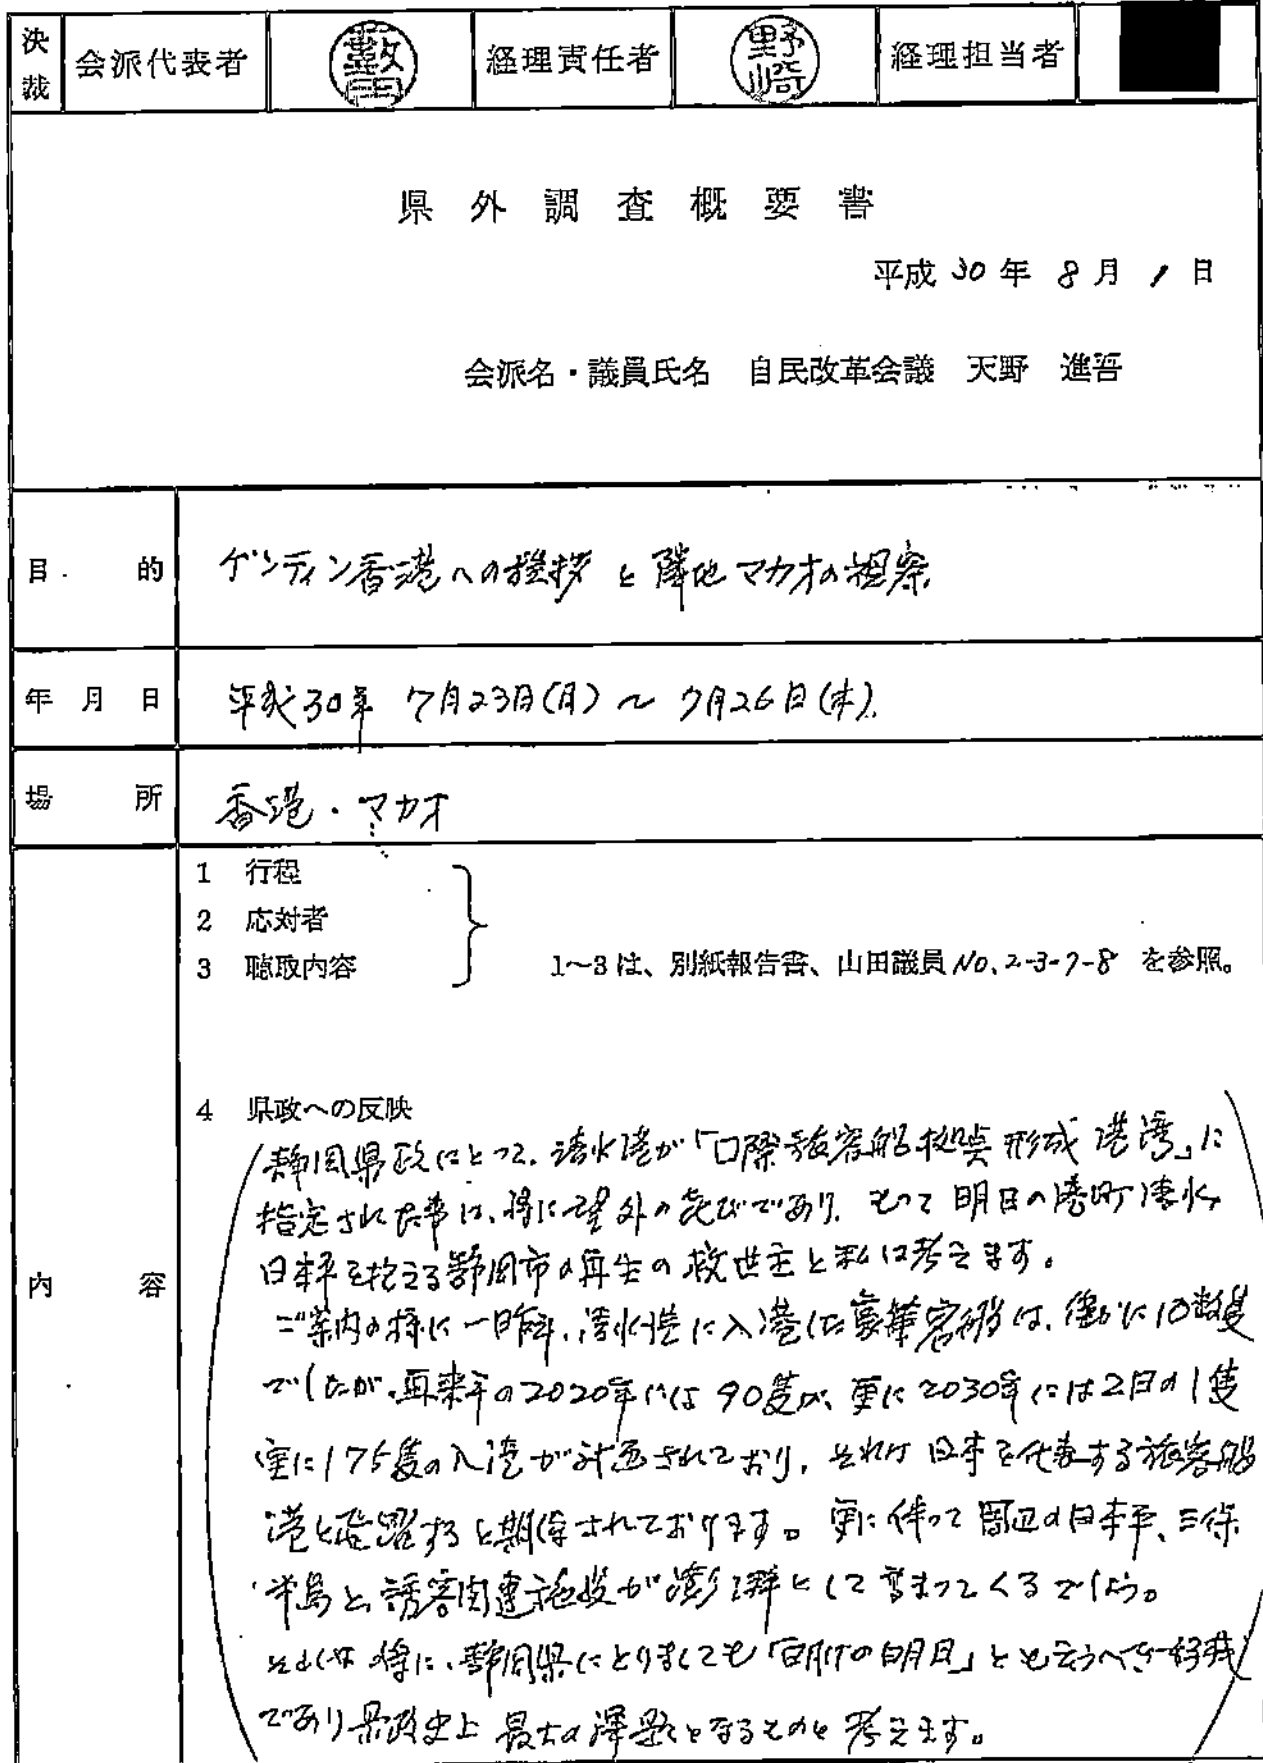 決裁 会派代表者 藪田 経理責任者 野崎 経理担当者
県外調査概要書
平成 30 年 8 月 1 日
会派名・議員氏名 自民改革会議 天野 進吾
目的 ゲンティン香港への挨拶と隣地マカオの視察
年月日 平成30年 7月23日(月)~7月26日(木)
場所 香港・マカオ
内容
1 行程
2 応対者
3 聴取内容 1~3は、別紙報告書、山田議員No.2-3-7-8 を参照。
4 県政への反映
静岡県政にとって、清水港が「口際旅客船拠点形成港湾」に
指定された事は、特に望外の喜びであり、もって明日の港町清水
日本平を抱える静岡市の再生の救世主と私は考えます。
ご案内の様に一昨年、清水港に入港した豪華客船は、僅かに10数隻
でしたが、再来年の2020年には90隻が、更に2030年には2日の1隻
実に175隻の入港が計画されており、それは日本を代表する旅客船
港と飛躍すると期待されております。更に伴って周辺の日本平、三保
半島と誘客関連施設が澎湃として高まってくるでしょう。
特に、静岡県にとりましても「白月」とも云うべき
であり県政史上最大の課題となるものと考えます。